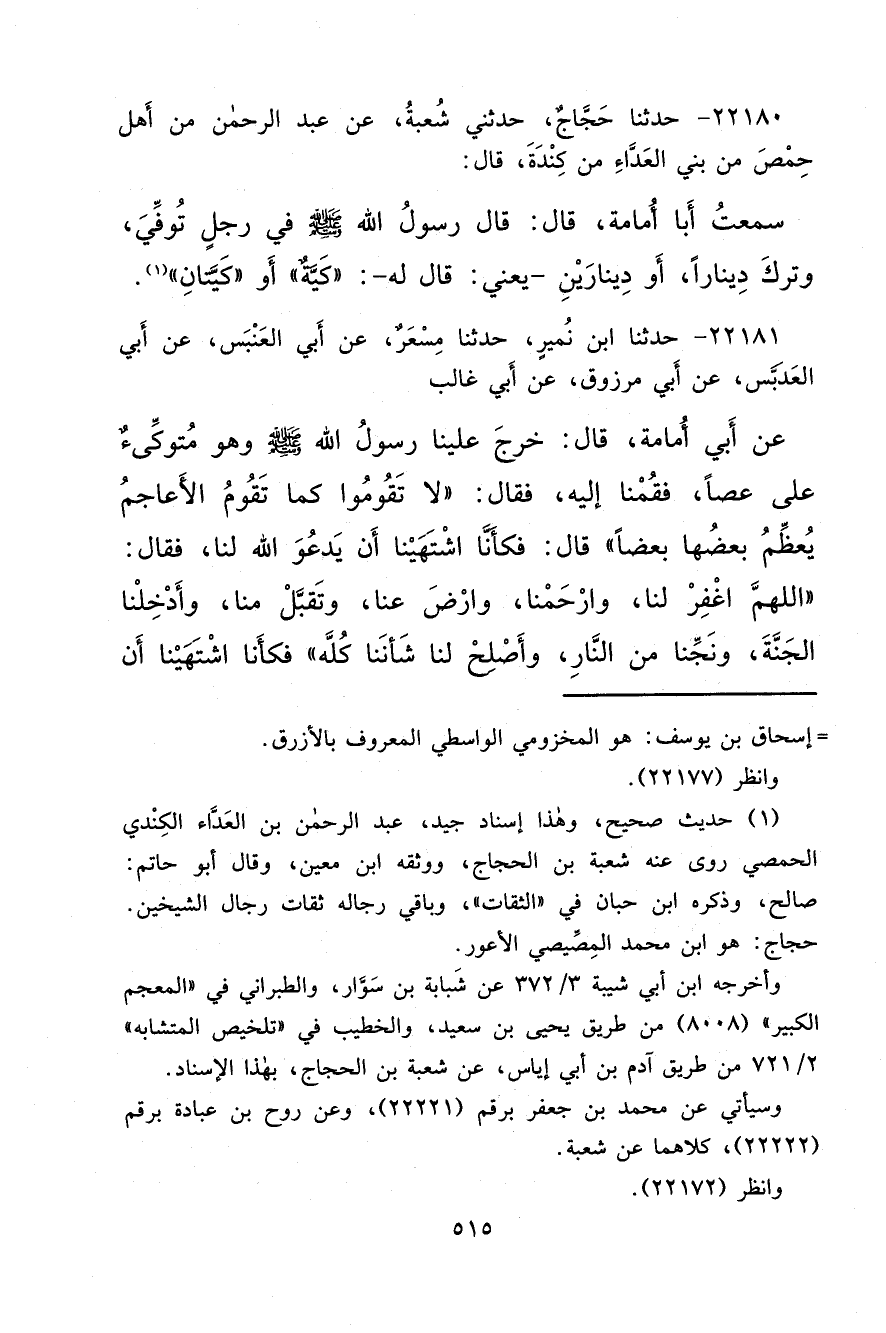 ٢٢١٨٠- حدثنا حَجَّاجٌ، حدثني شُعبةُ، عن عبد الرحمٰن من أَهل
حِمْصَ من بني العَدَّاءِ من كِنْدَةَ، قال:
سمعتُ أَبا أُمامة، قال: قال رسولُ الله ﷺ في رجلٍ تُوفِّيَ،
وتركَ دِيناراً، أَو دِينارَيْنِ -يعني: قال له-: «كَيَّةٌ» أَو «كَيَّتانِ»(١).
٢٢١٨١- حدثنا ابن نُميرٍ، حدثنا مِسْعَرٌ، عن أَبي العَنْبَس، عن أَبي
العَدَبَّس، عن أَبي مرزوق، عن أَبي غالب
عن أَبي أُمامة، قال: خرجَ علينا رسولُ الله ﷺ وهو مُتوكِّىءٌ
على عصاً، فقُمْنا إليه، فقال: «لا تَقُومُوا كما تَقُومُ الأَعاجمُ
يُعظِّمُ بعضُها بعضاً» قال: فكأَنَّا اشْتَهَيْنا أَن يَدعُوَ الله لنا، فقال:
«اللهمَّ اغْفِرْ لنا، وارْحَمْنا، وارْضَ عنا، وتَقبَّلْ منا، وأَدْخِلْنا
الجَنَّةَ، ونَجِّنا من النَّارِ، وأَصْلِحْ لنا شَأنَنا كُلَّه» فكأَنا اشْتَهَيْنا أَن
= إسحاق بن يوسف: هو المخزومي الواسطي المعروف بالأزرق.
وانظر (٢٢١٧٧).
(١) حديث صحيح، وهٰذا إسناد جيد، عبد الرحمٰن بن العَدَّاء الكِنْدي
الحمصي روى عنه شعبة بن الحجاج، ووثقه ابن معين، وقال أبو حاتم:
صالح، وذكره ابن حبان في «الثقات»، وباقي رجاله ثقات رجال الشيخين.
حجاج: هو ابن محمد المِصِّيصي الأعور.
وأخرجه ابن أبي شيبة ٣٧٢/٣ عن شَبابة بن سَوَّار، والطبراني في «المعجم
الكبير» (٨٠٠٨) من طريق يحيى بن سعيد، والخطيب في «تلخيص المتشابه»
٧٢١/٢ من طريق آدم بن أبي إياس، عن شعبة بن الحجاج، بهٰذا الإسناد.
وسيأتي عن محمد بن جعفر برقم (٢٢٢٢١)، وعن روح بن عبادة برقم
(٢٢٢٢٢)، كلاهما عن شعبة.
وانظر (٢٢١٧٢).
٥١٥